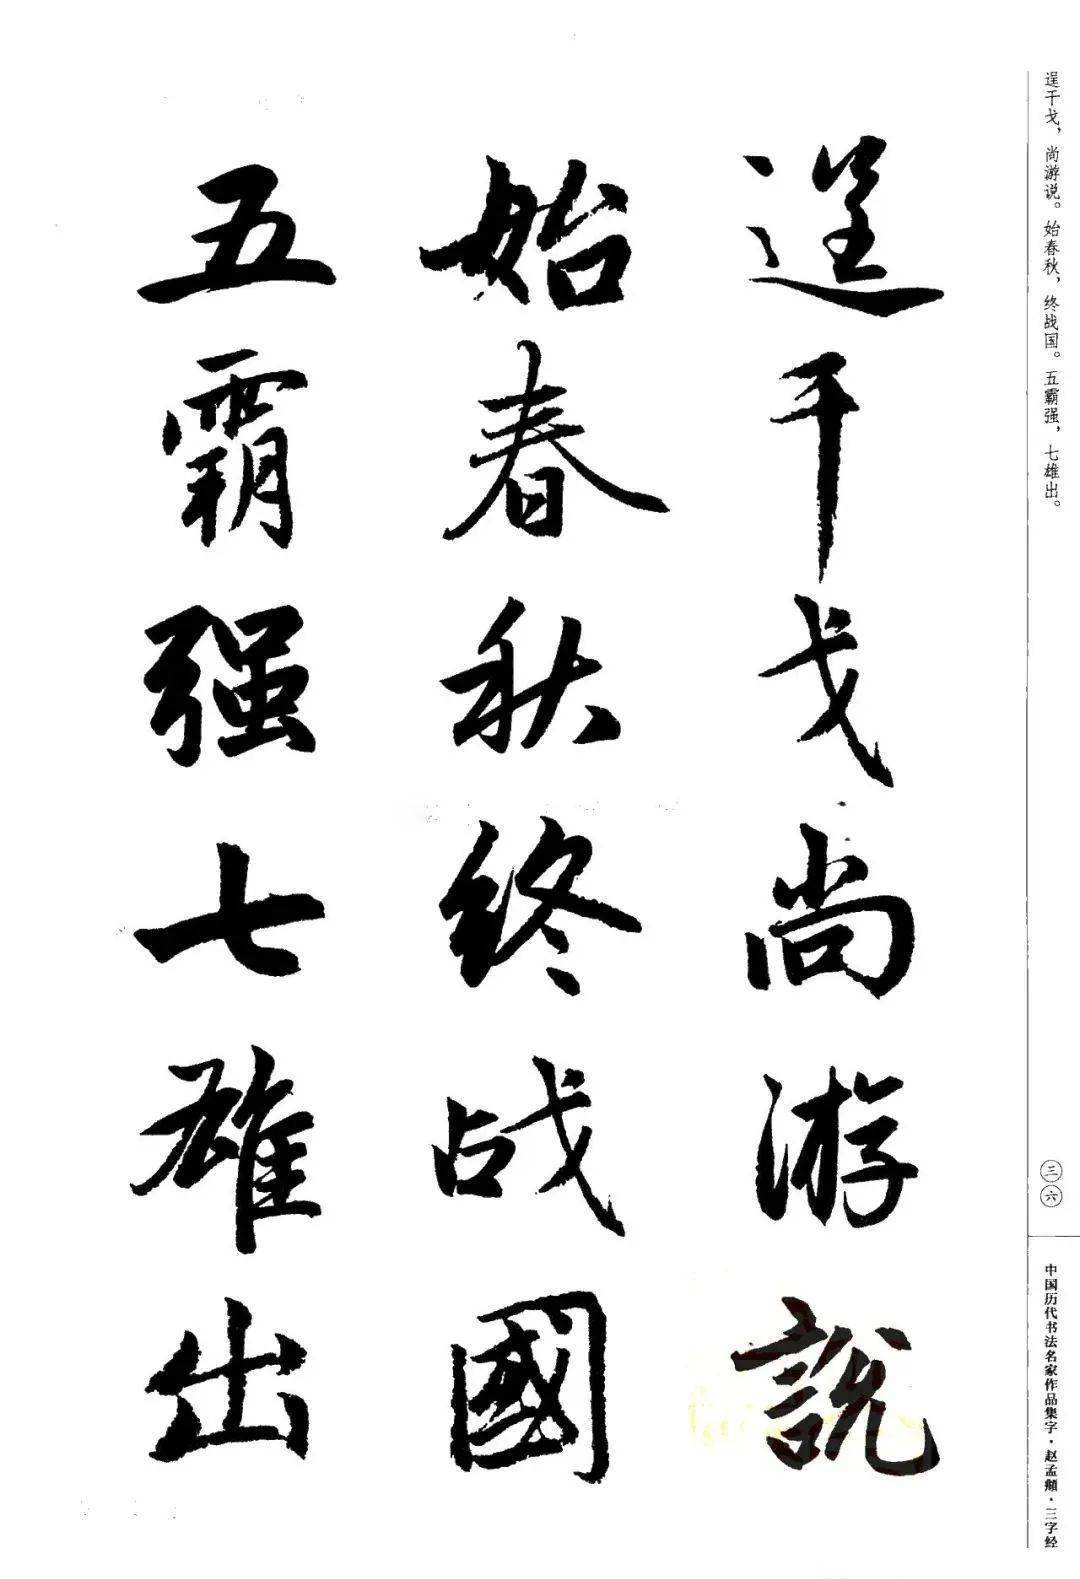 逞干戈尚游説
始春秋终战國
五霸强七雄出
逞干戈，尚游说。始春秋，终战国。五霸强，七雄出。
三六
中国历代书法名家作品集字·赵孟頫·三字经